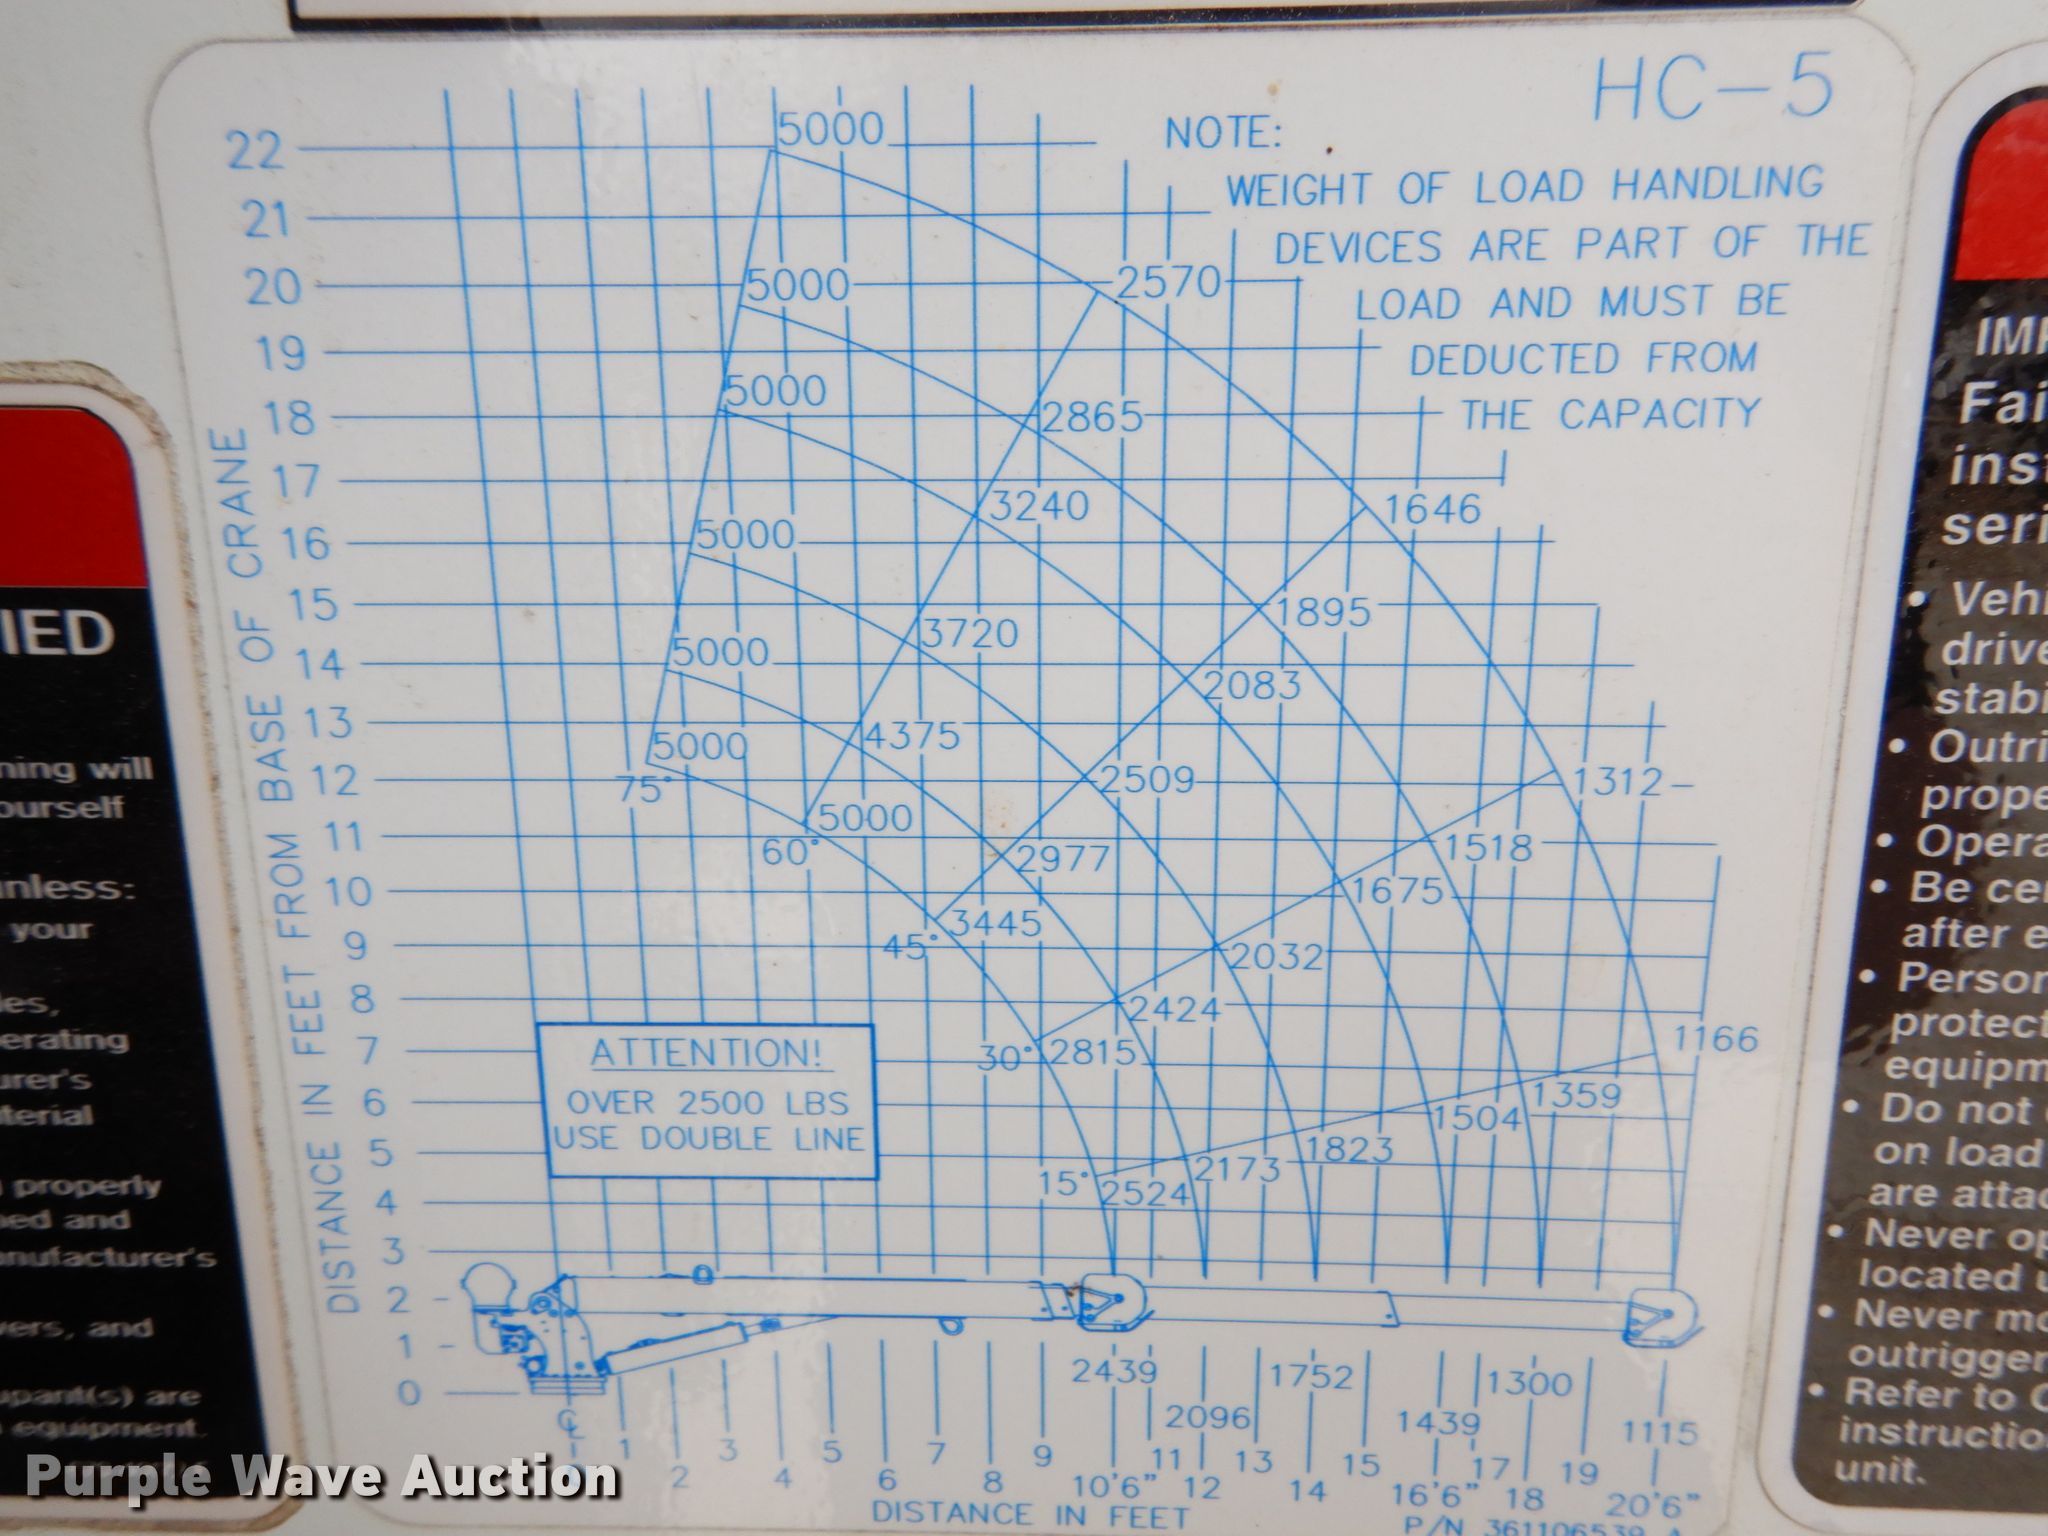 HC-5
NOTE:
WEIGHT OF LOAD HANDLING
DEVICES ARE PART OF THE
LOAD AND MUST BE
DEDUCTED FROM
THE CAPACITY
DISTANCE IN FEET FROM BASE OF CRANE
22
21
20
19
18
17
16
15
14
13
12
11
10
9
8
7
6
5
4
3
2
1
0
5000
5000 2570
5000 2865
3240 1646
5000
3720 1895
5000 2083
5000 4375
75° 2509 1312
5000
60° 2977 1518
3445 1675
45° 2032
2424
30° 2815 1166
1359
1504
1823
15° 2173
2524
ATTENTION!
OVER 2500 LBS
USE DOUBLE LINE
2439 1752 1300
2096 1439 1115
1 3 5 7 9 11 13 15 17 19
2 4 6 8 10'6" 12 14 16'6" 18 20'6"
DISTANCE IN FEET
P/N 361106539 A
IED
ning will
ourself
nless:
your
les,
erating
urer's
terial
properly
ped and
anufacturer's
vers, and
upant(s) are
equipment.
IMP
Fai
inst
seri
• Vehi
drive
stabi
• Outri
prope
• Opera
• Be cer
after e
• Person
protect
equipm
• Do not
on load
are attac
• Never op
located u
• Never mo
outrigger
• Refer to O
instruction
unit.
Purple Wave Auction